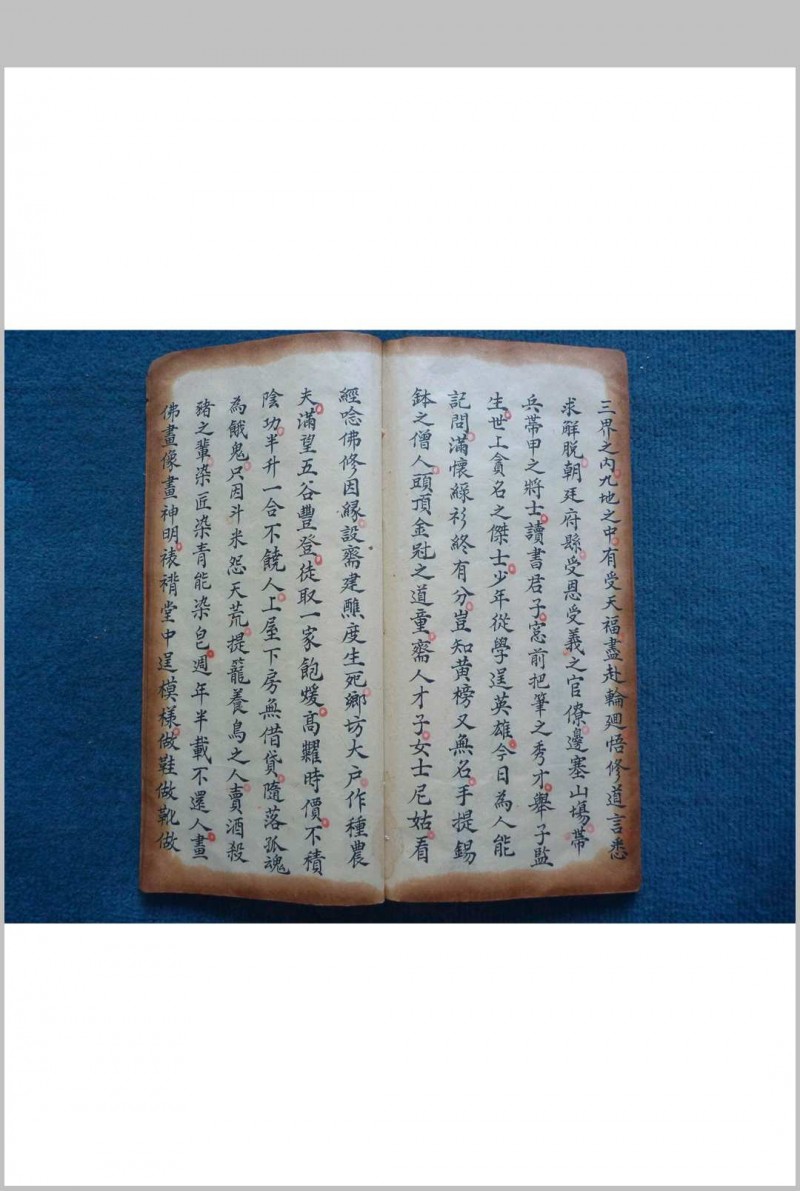 三界之内九地之中有受天福盡赴輪廻悟修道言悉
求解脫朝廷府縣受恩受義之官僚邊塞山塲帶
兵帶甲之將士讀書君子窓前把筆之秀才舉子監
生世上貪名之傑士少年從學逞英雄今日為人能
記問滿懷綠衫終有分豈知黄榜又無名手提錫
鉢之僧人頭頂金冠之道童齋人才子女士尼姑看
經唸佛修因緣設齋建醮度生死鄉坊大戶作種農
夫滿望五谷豐登徒取一家飽煖高糶時價不積
陰功半升一合不饒人上屋下房無借貸隨落孤魂
為餓鬼只因斗米怨天荒提籠養鳥之人賣酒殺
豬之輩染匠染青能染皂週年半載不還人畫
佛畫像畫神明裱褙堂中逞模樣做鞋做靴做